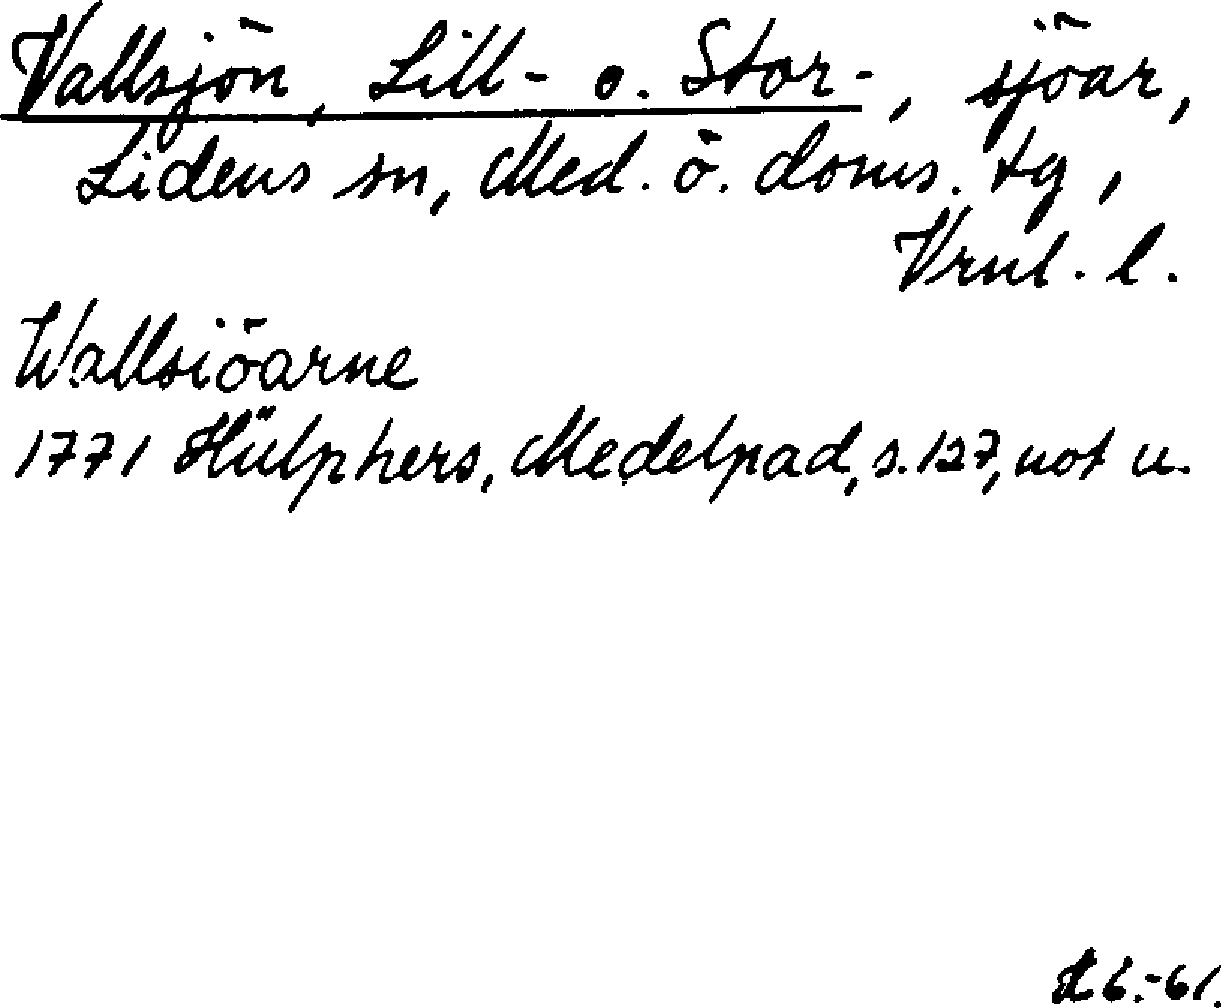 Vallsjön, Lill- o. Stor-, sjöar,
Lidens sn, Med. ö. doms. tg,
Vrnl. l.
Wallsiöarne
1771 Hülphers, Medelpad, s. 127, not u.